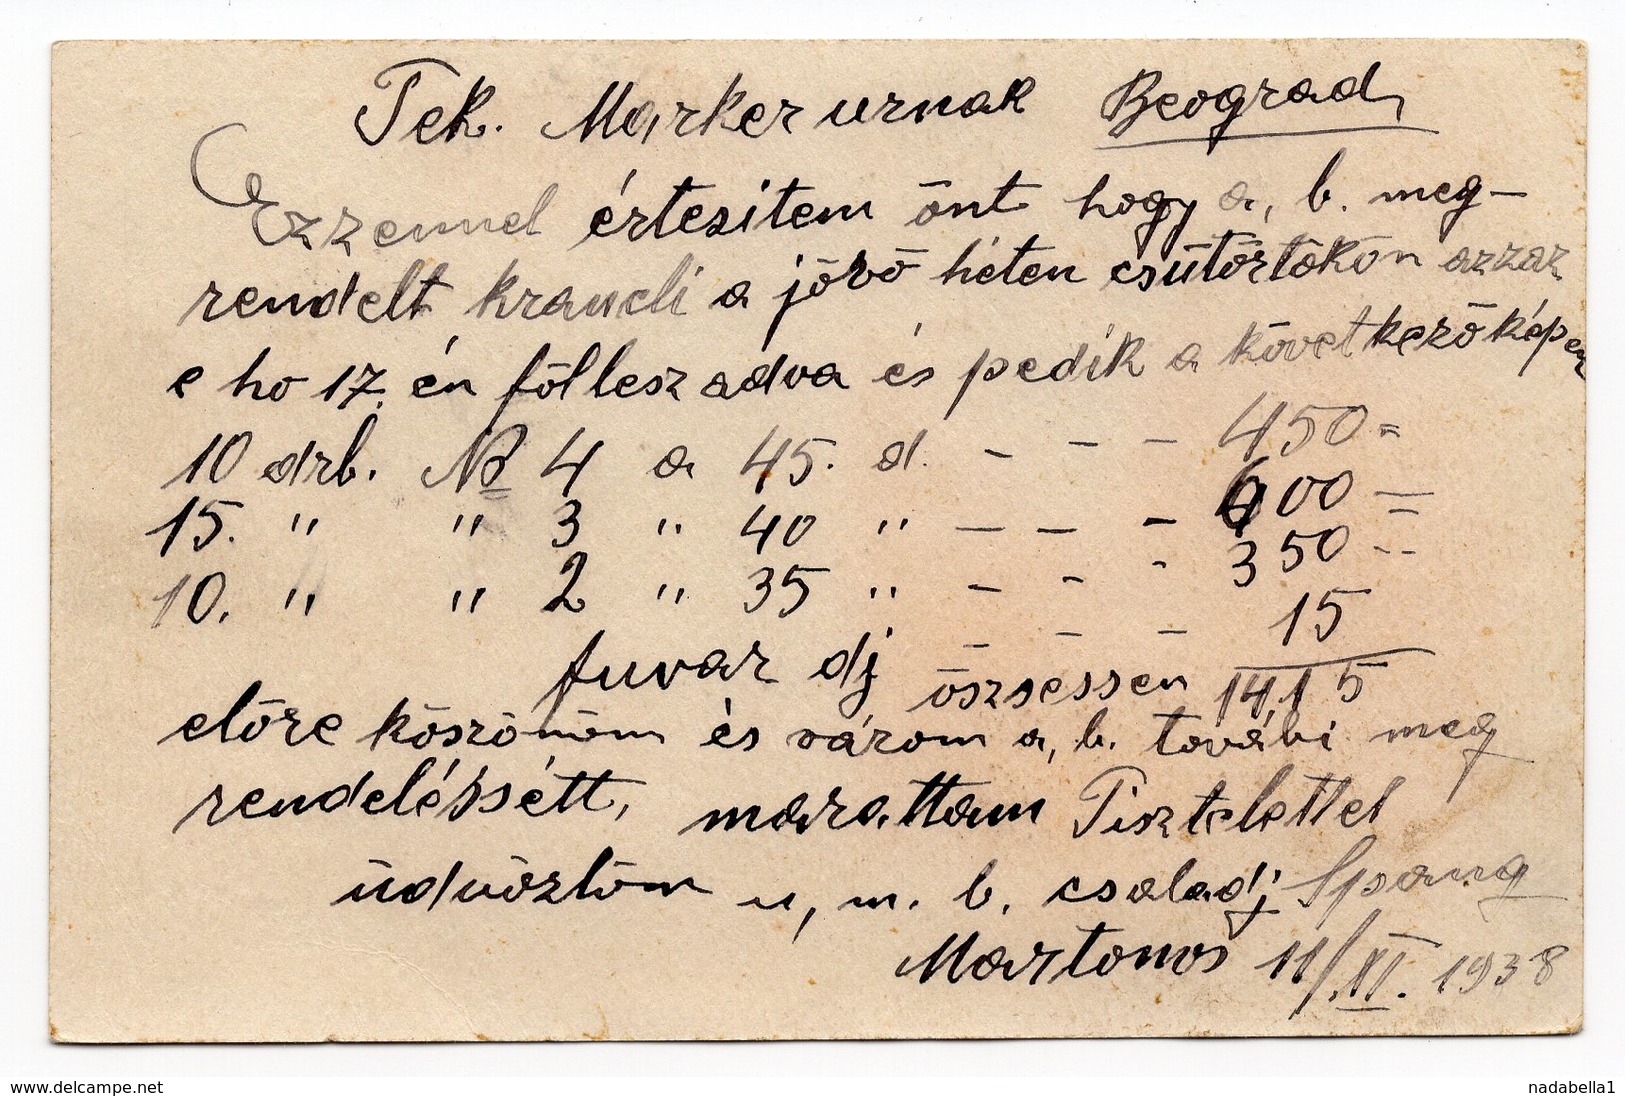 Tek. Marker urnak Beograd,
Ezzennel értesitem önt hogy a, b. meg-
rendelt krancli a jövö héten csütörtökön azzaz
e ho 17. én föllesz adva és pedik a következöképen
10 drb. No 4 a 45. d. - - - 450 =
15. " " 3 " 40 " - - - 600 =
10. " " 2 " 35 " - - - 350 --
fuvar dj - - - 15
öszsessen 1415
elöre köszönöm ès várom a, b. további meg
rendeléssétt, marattam Tisztelettel
üdvözlöm u, m. b. csaladj Spang
Martonos 11/XI. 1938
www.delcampe.net
nadabella1